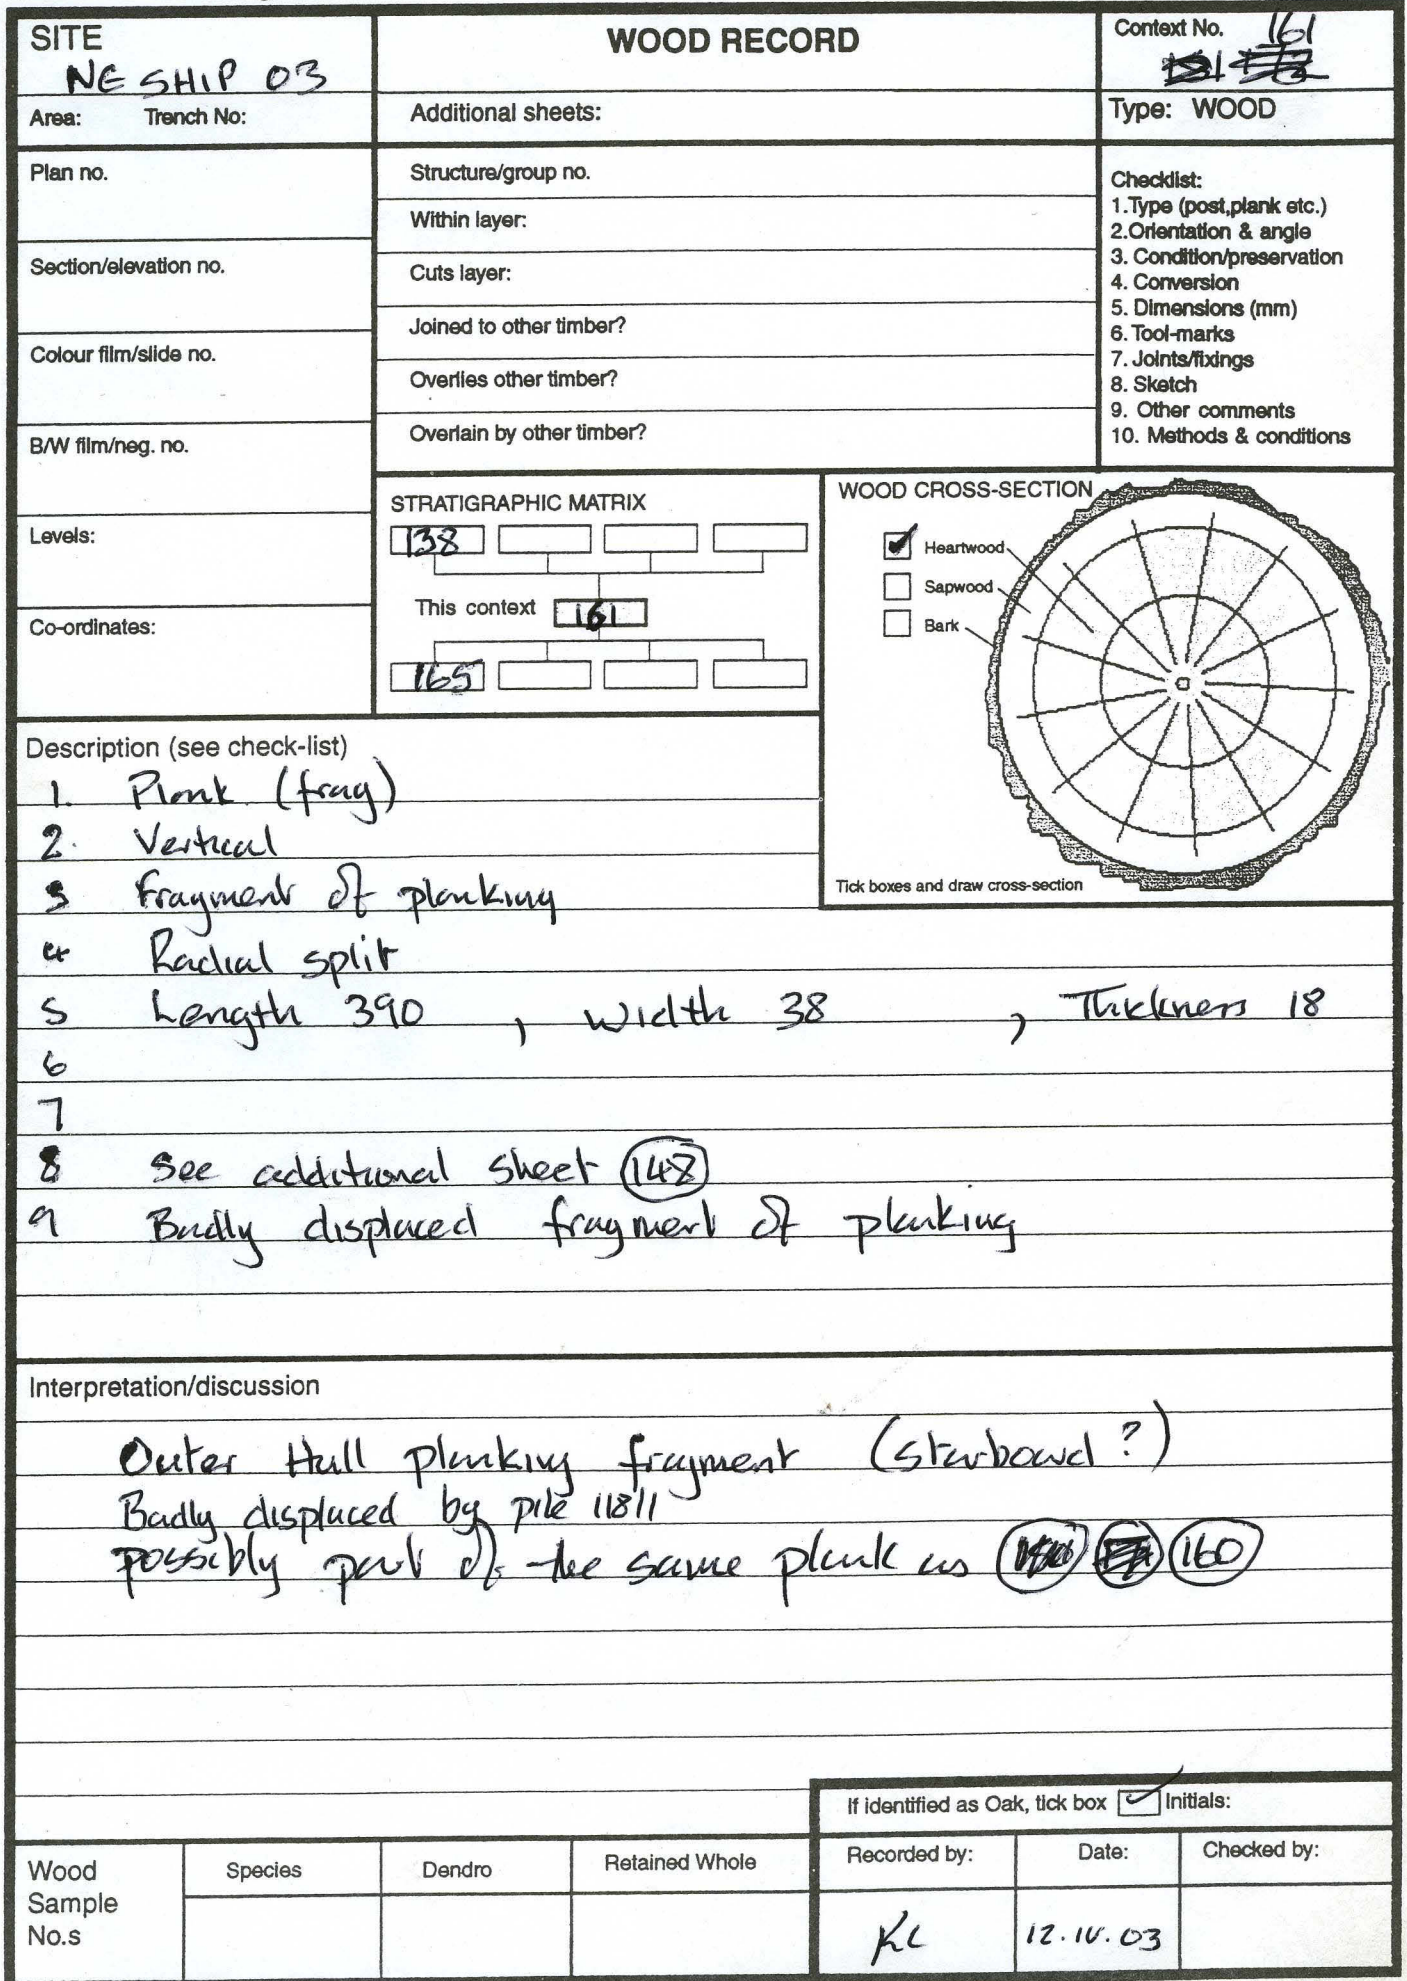 SITE
NE SHIP 03
WOOD RECORD
Context No. 161
Area: Trench No:
Additional sheets:
Type: WOOD
Plan no.
Section/elevation no.
Colour film/slide no.
B/W film/neg. no.
Levels:
Co-ordinates:
Structure/group no.
Within layer:
Cuts layer:
Joined to other timber?
Overlies other timber?
Overlain by other timber?
Checklist:
1.Type (post,plank etc.)
2.Orientation & angle
3. Condition/preservation
4. Conversion
5. Dimensions (mm)
6. Tool-marks
7. Joints/fixings
8. Sketch
9. Other comments
10. Methods & conditions
STRATIGRAPHIC MATRIX
138
This context 161
165
WOOD CROSS-SECTION
Heartwood
Sapwood
Bark
Tick boxes and draw cross-section
Description (see check-list)
1. Plank (frag)
2. Vertical
3 Fragment of planking
4 Radial split
5 Length 390 , Width 38 , Thickness 18
6
7
8 See additional sheet 148
9 Badly displaced fragment of planking
Interpretation/discussion
Outer Hull planking fragment (starboard?)
Badly displaced by pile 11811
possibly part of the same plank as 160
If identified as Oak, tick box Initials:
Wood Sample No.s
Species
Dendro
Retained Whole
Recorded by:
KL
Date:
12.IV.03
Checked by: